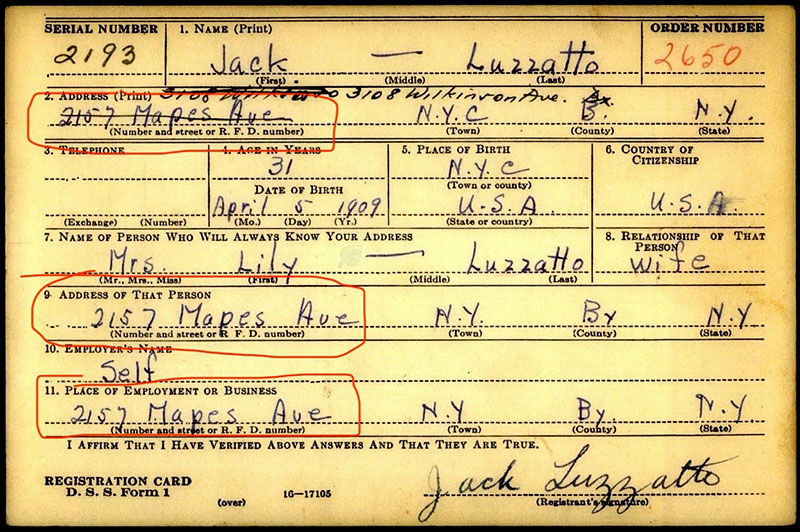 SERIAL NUMBER 1. NAME (Print) ORDER NUMBER
2193 Jack — Luzzatto 2650
(First) (Middle) (Last)
2. ADDRESS (Print) 3108 Wilkinson Ave. Bx.
2157 Mapes Ave N.Y.C B. N.Y.
(Number and street or R. F. D. number) (Town) (County) (State)
3. TELEPHONE 4. AGE IN YEARS 5. PLACE OF BIRTH 6. COUNTRY OF CITIZENSHIP
31 N.Y.C
DATE OF BIRTH (Town or county)
April 5 1909 U.S.A. U.S.A.
(Exchange) (Number) (Mo.) (Day) (Yr.) (State or country)
7. NAME OF PERSON WHO WILL ALWAYS KNOW YOUR ADDRESS 8. RELATIONSHIP OF THAT PERSON
Mrs. Lily — Luzzatto wife
(Mr., Mrs., Miss) (First) (Middle) (Last)
9. ADDRESS OF THAT PERSON
2157 Mapes Ave N.Y. Bx N.Y
(Number and street or R. F. D. number) (Town) (County) (State)
10. EMPLOYER'S NAME
Self
11. PLACE OF EMPLOYMENT OR BUSINESS
2157 Mapes Ave N.Y By. N.Y.
(Number and street or R. F. D. number) (Town) (County) (State)
I AFFIRM THAT I HAVE VERIFIED ABOVE ANSWERS AND THAT THEY ARE TRUE.
REGISTRATION CARD Jack Luzzatto
D. S. S. Form 1 (over) 16—17105 (Registrant's signature)